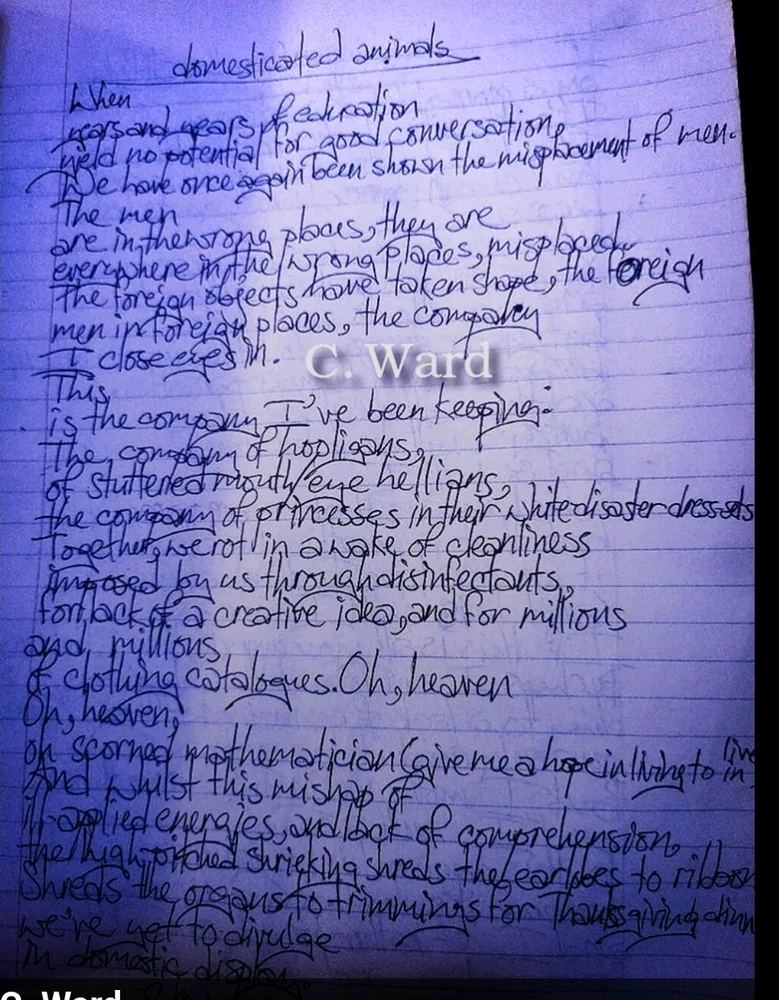 domesticated animals
When
years and years of education
yield no potential for good conversation,
We have once again been shown the misplacement of men.
The men
are in the wrong places, they are
everywhere in the wrong places, misplaced.
The foreign objects have taken shape, the foreign
men in foreign places, the company
I close eyes in.
C. Ward
This
is the company I've been keeping:
The company of hooligans,
of stuttered mouth/eye hellians,
the company of princesses in their white disaster dress sets
Together, we rot in a wake of cleanliness
imposed by us through disinfectants,
for lack of a creative idea, and for millions
and millions
of clothing catalogues. Oh, heaven
Oh, heaven,
oh scorned mathematician (give me a hope in living to live in
And whilst this mishap of
ill-applied energies, and lack of comprehension,
the high-pitched shrieking shreds the earlobes to ribbon
Shreds the organs to trimmings for Thanksgiving dinn
we've yet to divulge
in domestic display.
C. Ward